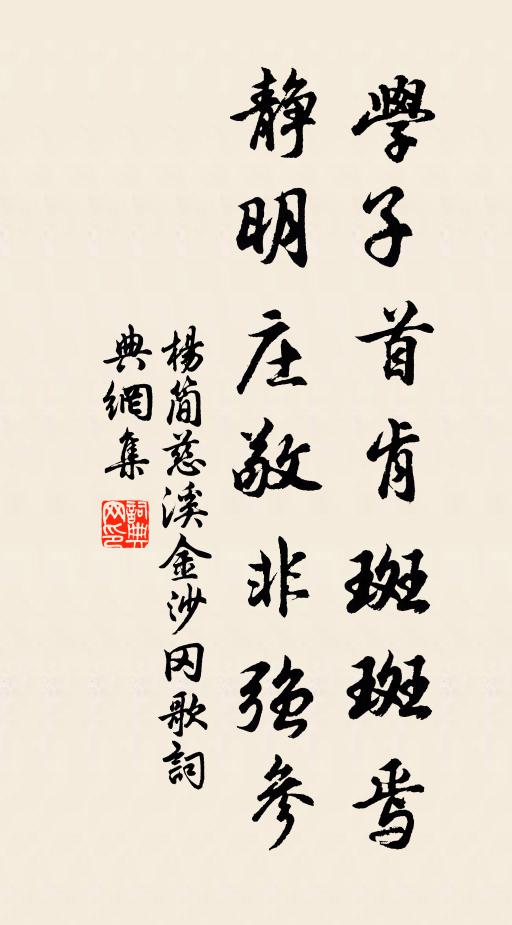 學子首肯斑斑焉
静明庄敬非強參
楊簡慈溪金沙冈歌詞
典網集
詞典网印